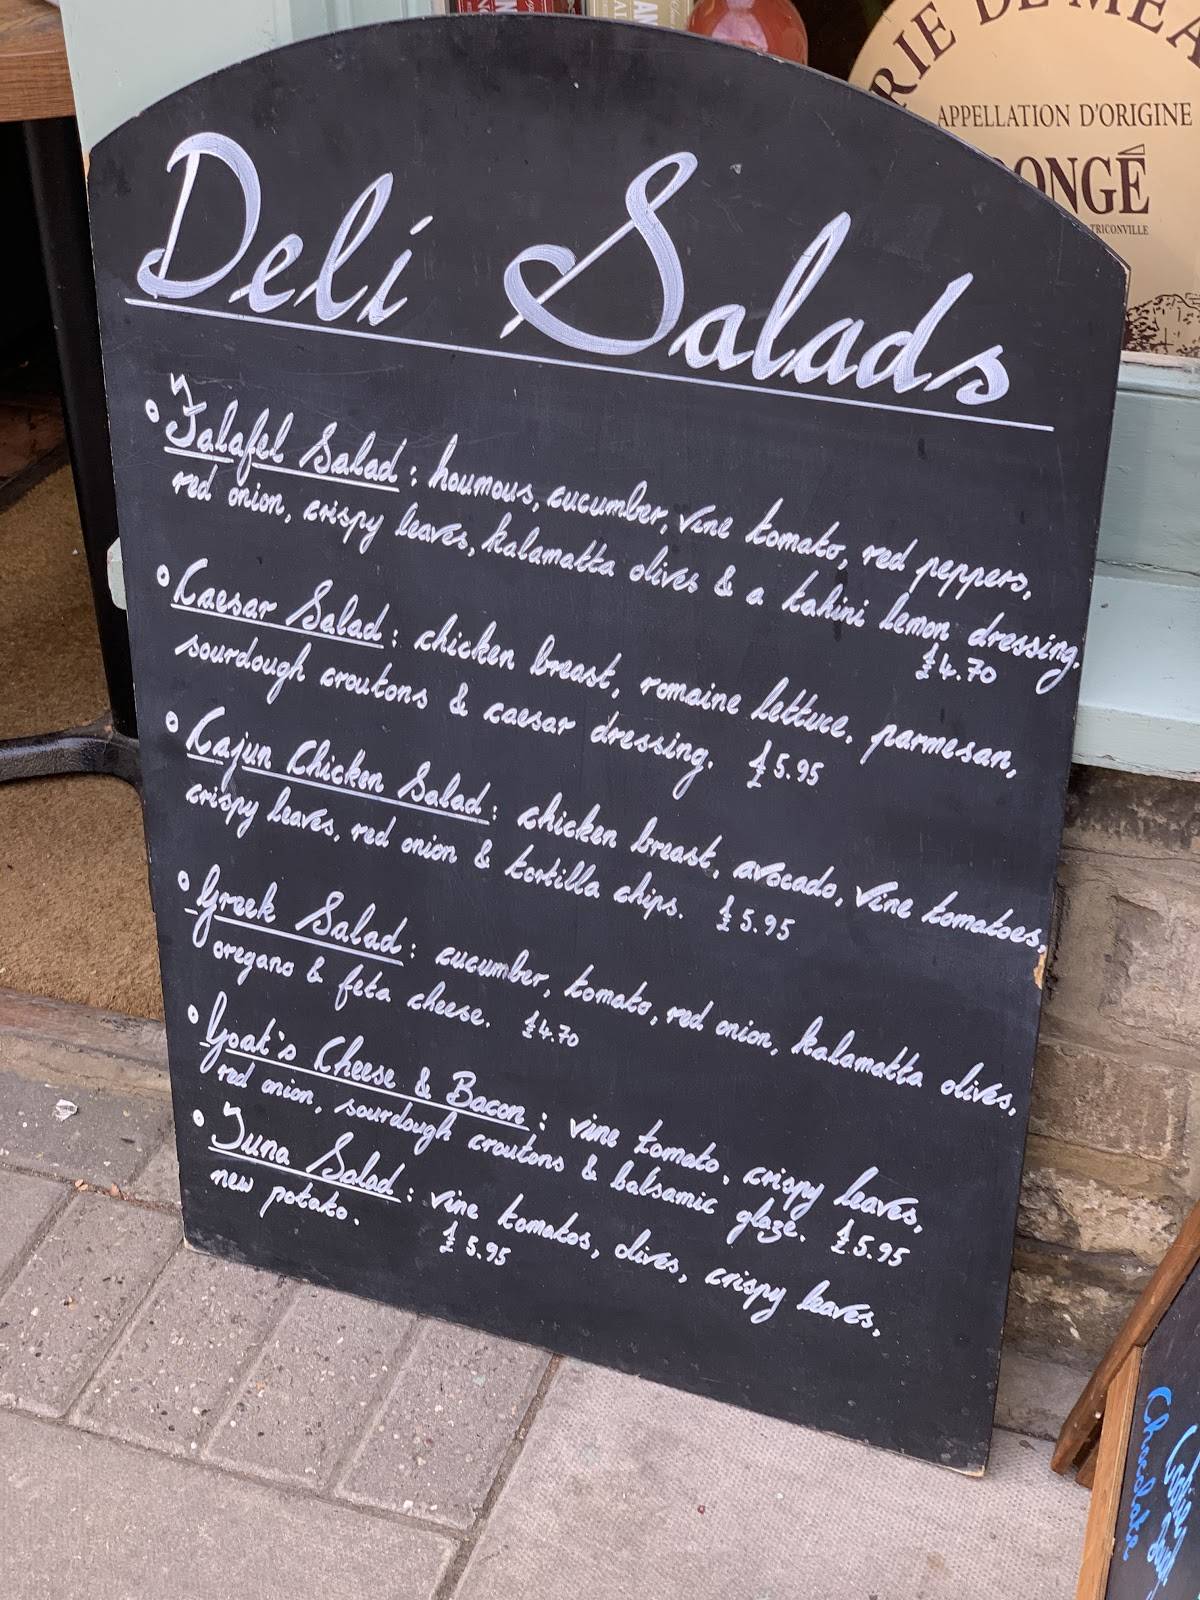 Deli Salads
° Falafel Salad : houmous, cucumber, vine tomato, red peppers,
red onion, crispy leaves, kalamatta olives & a tahini lemon dressing.
£4.70
° Caesar Salad : chicken breast, romaine lettuce, parmesan,
sourdough croutons & caesar dressing. £5.95
° Cajun Chicken Salad : chicken breast, avocado, vine tomatoes,
crispy leaves, red onion & tortilla chips. £5.95
° Greek Salad : cucumber, tomato, red onion, kalamatta olives,
oregano & feta cheese. £4.70
° Goat's Cheese & Bacon : vine tomato, crispy leaves,
red onion, sourdough croutons & balsamic glaze. £5.95
° Tuna Salad : vine tomatos, olives, crispy leaves,
new potato. £5.95
RIE DE MEA
APPELLATION D'ORIGINE
ONGÉ
TRICONVILLE
Chocolate